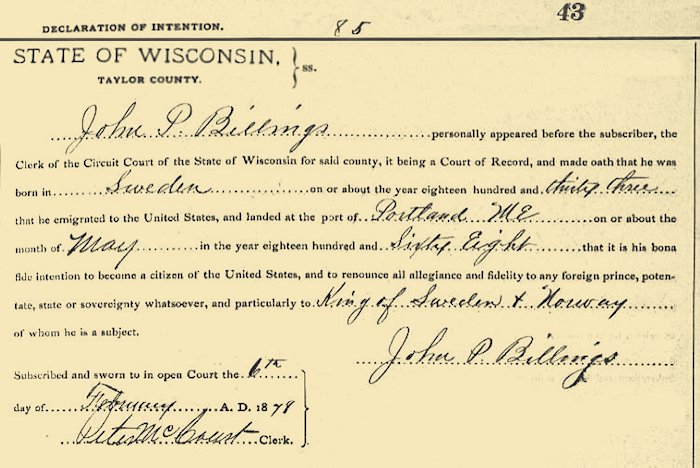 43
DECLARATION OF INTENTION. 85
STATE OF WISCONSIN,
TAYLOR COUNTY. } ss.
John P. Billings personally appeared before the subscriber, the
Clerk of the Circuit Court of the State of Wisconsin for said county, it being a Court of Record, and made oath that he was
born in Sweden on or about the year eighteen hundred and thirty three
that he emigrated to the United States, and landed at the port of Portland ME on or about the
month of May in the year eighteen hundred and Sixty Eight that it is his bona
fide intention to become a citizen of the United States, and to renounce all allegiance and fidelity to any foreign prince, poten-
tate, state or sovereignty whatsoever, and particularly to King of Sweden & Norway
of whom he is a subject.
John P. Billings
Subscribed and sworn to in open Court the 6th
day of February A. D. 1879
Peter McCourt Clerk.